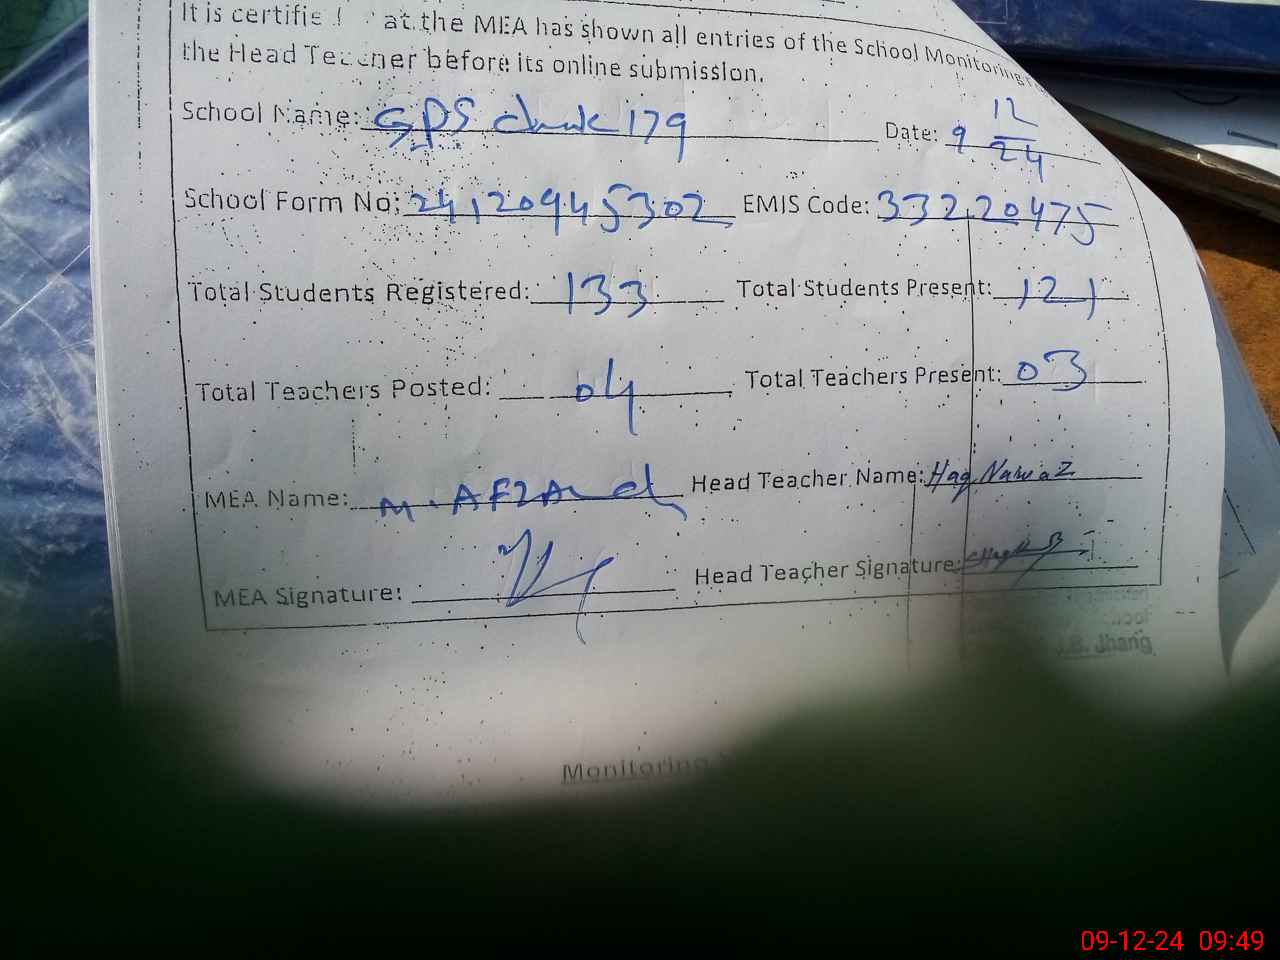 It is certifie at the MEA has shown all entries of the School Monitoring
the Head Teacher before its online submission.
School Name: GPS chak 179 Date: 9 12/24
School Form No: 241209945302 EMIS Code: 33220475
Total Students Registered: 133 Total Students Present: 121
Total Teachers Posted: 04 Total Teachers Present: 03
MEA Name: M. AFZAL Head Teacher Name: Haq Nawaz
MEA Signature: Head Teacher Signature:
J.B. Jhang
Monitoring
09-12-24 09:49